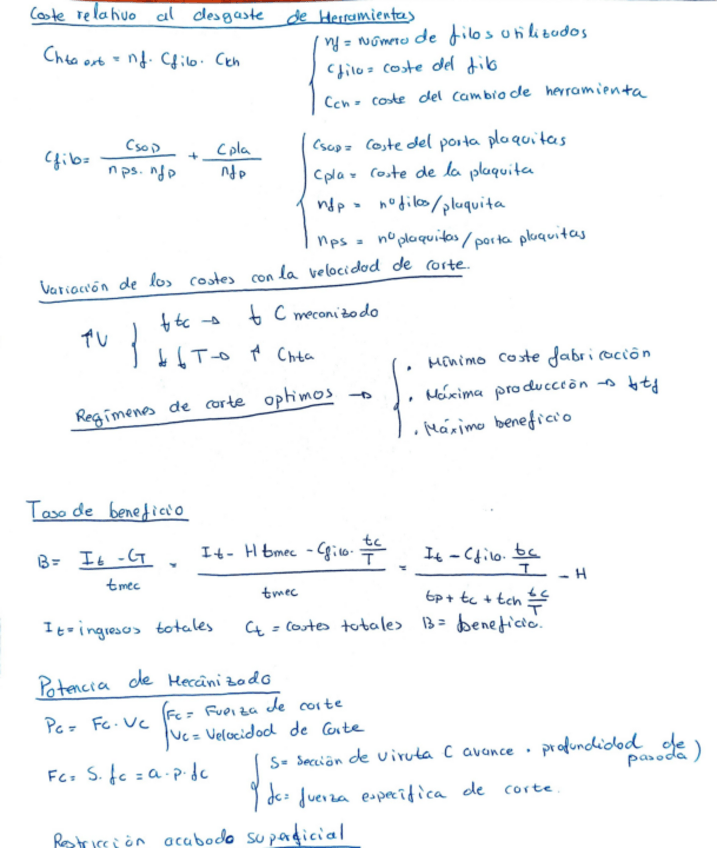 Coste relativo al desgaste de Herramientas
Chta ext = nf. Cfilo. Cch
nf = número de filos utilizados
Cfilo = coste del filo
Cch = coste del cambio de herramienta
Cfilo = Csop / nps. nfp + Cpla / nfp
Csop = coste del porta plaquitas
Cpla = coste de la plaquita
nfp = nº filos/plaquita
nps = nº plaquitas/porta plaquitas
Variación de los costes con la velocidad de corte.
↑V { ↓tc → ↓ C mecanizado
↓↓T → ↑ Chta
Regímenes de corte óptimos →
. Mínimo coste fabricación
. Máxima producción → ↓tf
. Máximo beneficio
Tasa de beneficio
B = It - CT / tmec = It - H tmec - Cfilo. tc/T / tmec = It - Cfilo. tc/T / tp + tc + tch tc/T - H
It = ingresos totales Ct = costes totales B = beneficio.
Potencia de Mecanizado
Pc = Fc. Vc
Fc = Fuerza de corte
Vc = Velocidad de Corte
Fc = S. fc = a. p. fc
S = sección de viruta ( avance . profundidad de pasada )
fc = fuerza específica de corte.
Restricción acabado superficial